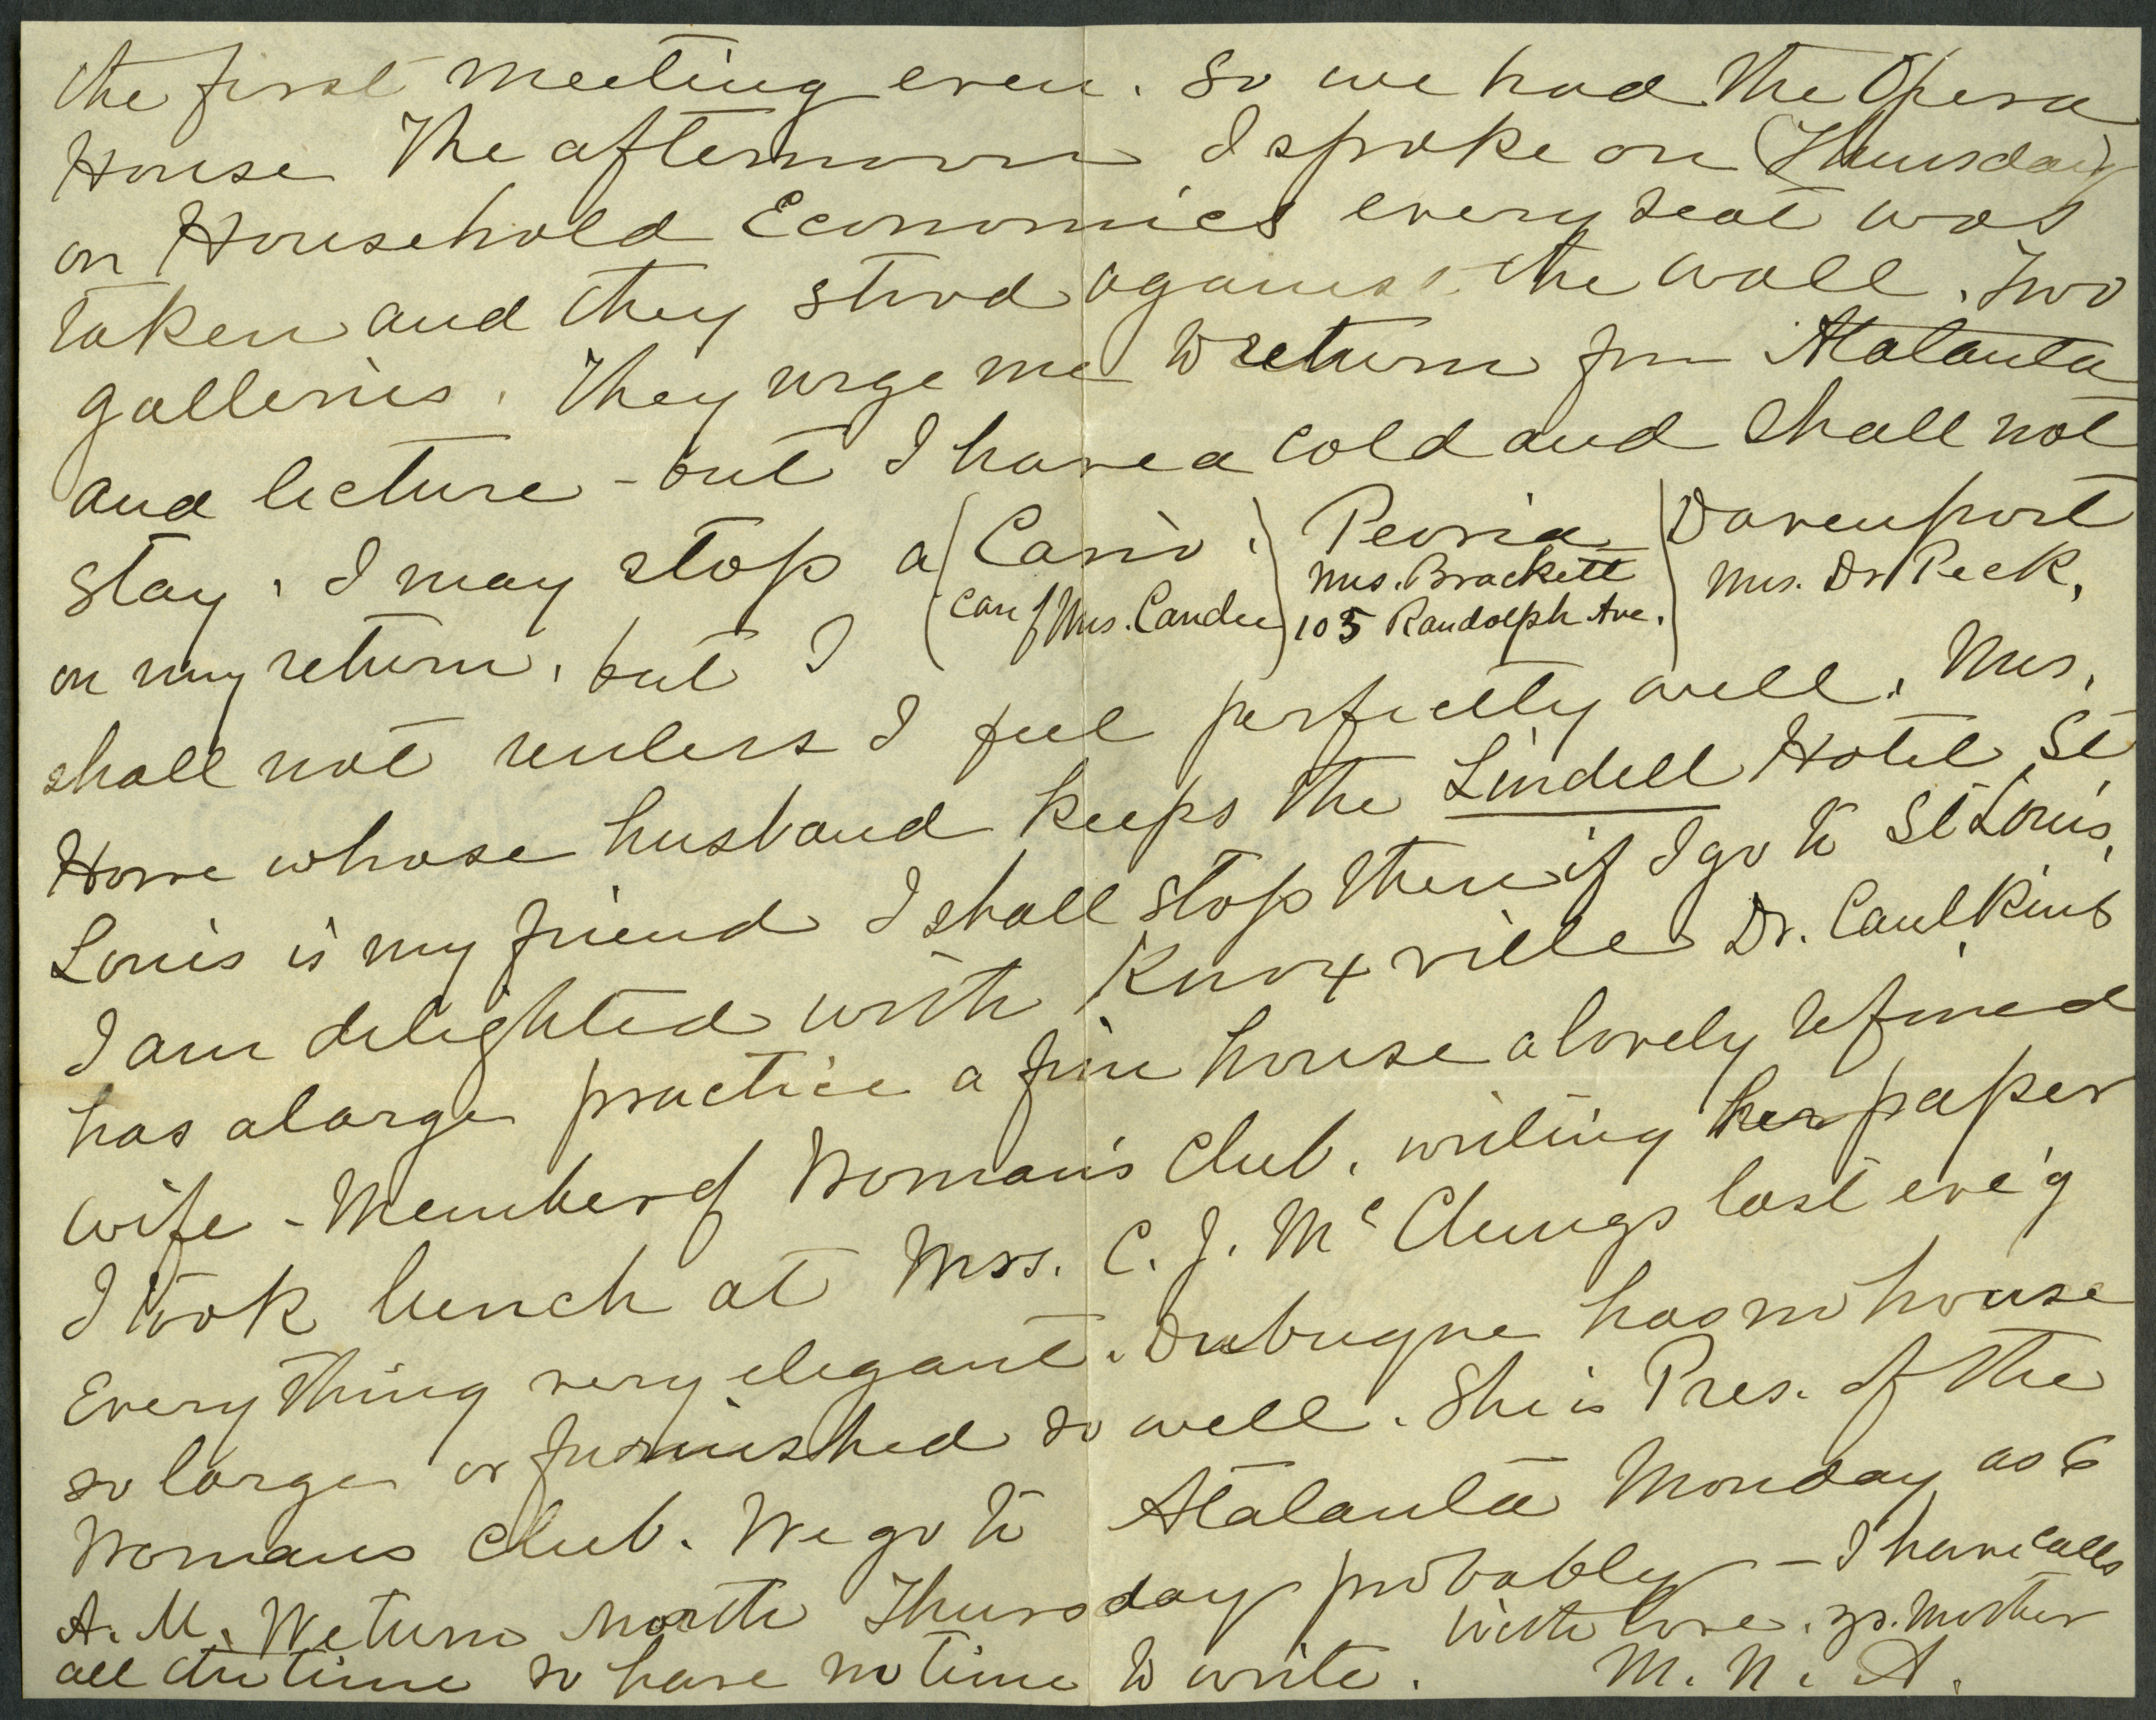 the first meeting even. So we had the Opera
House The afternoon I spoke on Thursday
on Household Economics every seat was
taken and they stood against the wall. Two
galleries. They urge me to return from Atalanta
and lecture - but I have a cold and shall not
stay. I may stop a (Cairo.) Peoria) Davenport
(Care of Mrs. Candee) Mrs. Brackett Mrs. Dr Peck,
105 Randolph Ave.
on my return, but I
shall not unless I feel perfectly well. Mrs.
Howe whose husband keeps the Lindell Hotel St
Louis is my friend I shall stop there if I go to St Louis,
I am delighted with Knoxville Dr. Caulkins
has a large practice a fine house a lovely refined
wife - Member of Woman's Club. writing her paper
I took lunch at Mrs. C. J. McClungs last eve'g
Every thing very elegant. Dubuque has no house
so large or furnished so well. She is Pres. of the
Womans Club. We go to Atalanta Monday as 6
A. M. We turn north Thursday probably - I have calls
all the time so have no time to write. With love. yr. Mother
M. N. A.